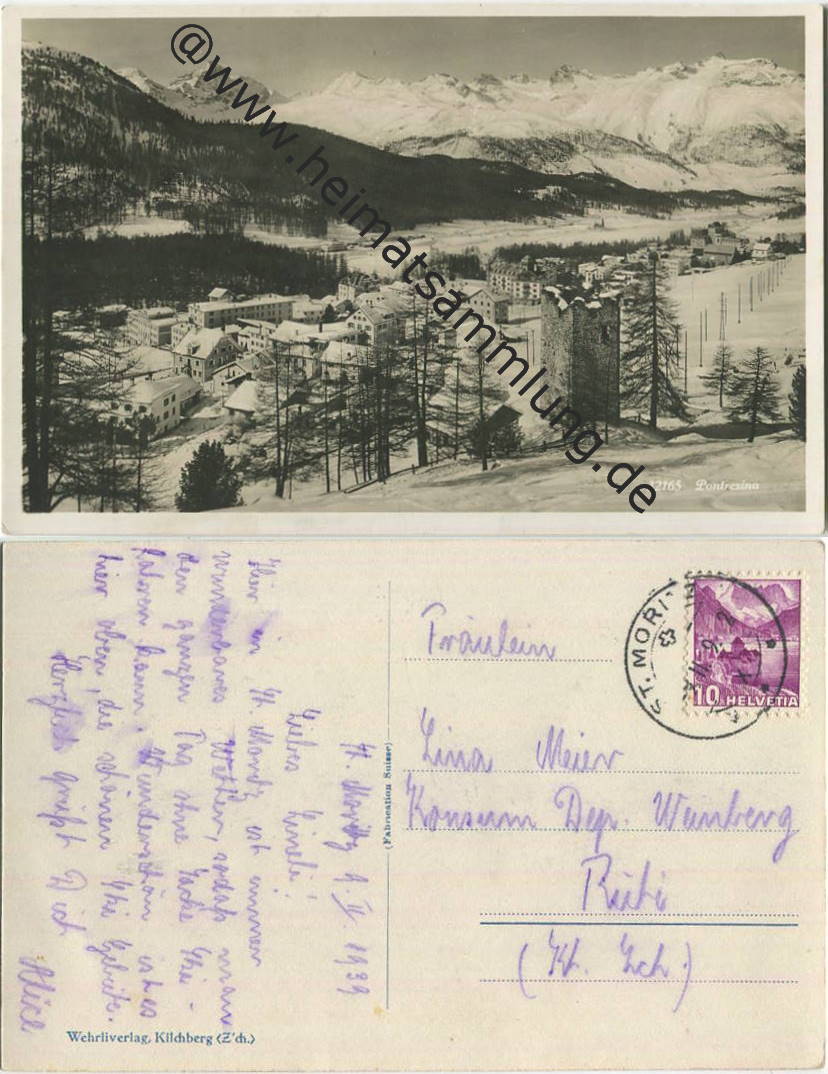 @www.heimatsammlung.de
32165 Pontresina
St. Moritz 9. II. 1939
Liebes Lineli!
Hier in St. Moritz ist immer
wunderbares Wetter, sodass man
den ganzen Tag ohne Jacke Ski-
fahren kann. Wunderschön ist es
hier oben, die schönen Ski Gebiete.
Herzlich grüsst Dich
(Fabrication Suisse)
Fräulein
Lina Meier
Konsum Dep. Weinberg
Rüti
(Kt. Zch.)
ST. MORITZ
10 HELVETIA
Wehrliverlag, Kilchberg (Z'ch.)